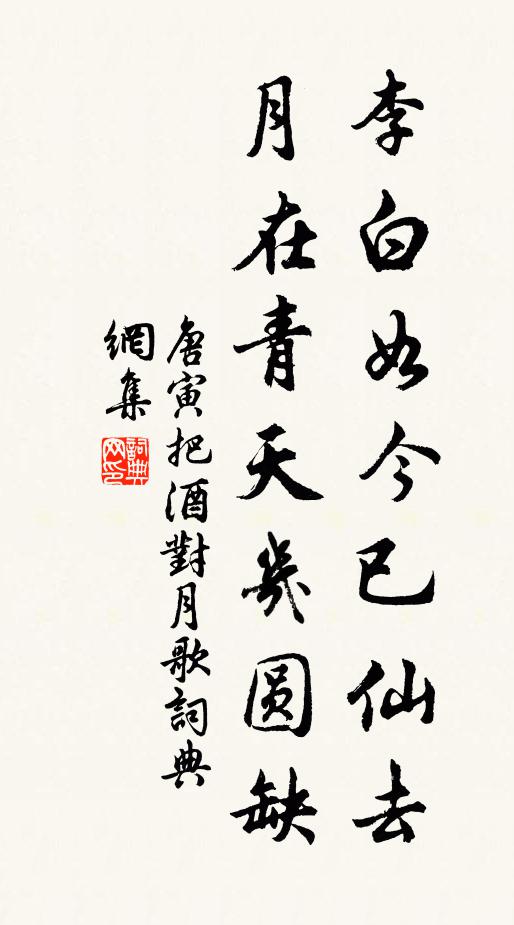 李白如今已仙去
月在青天幾圆缺
唐寅把酒對月歌詞典
網集
詞典
网印